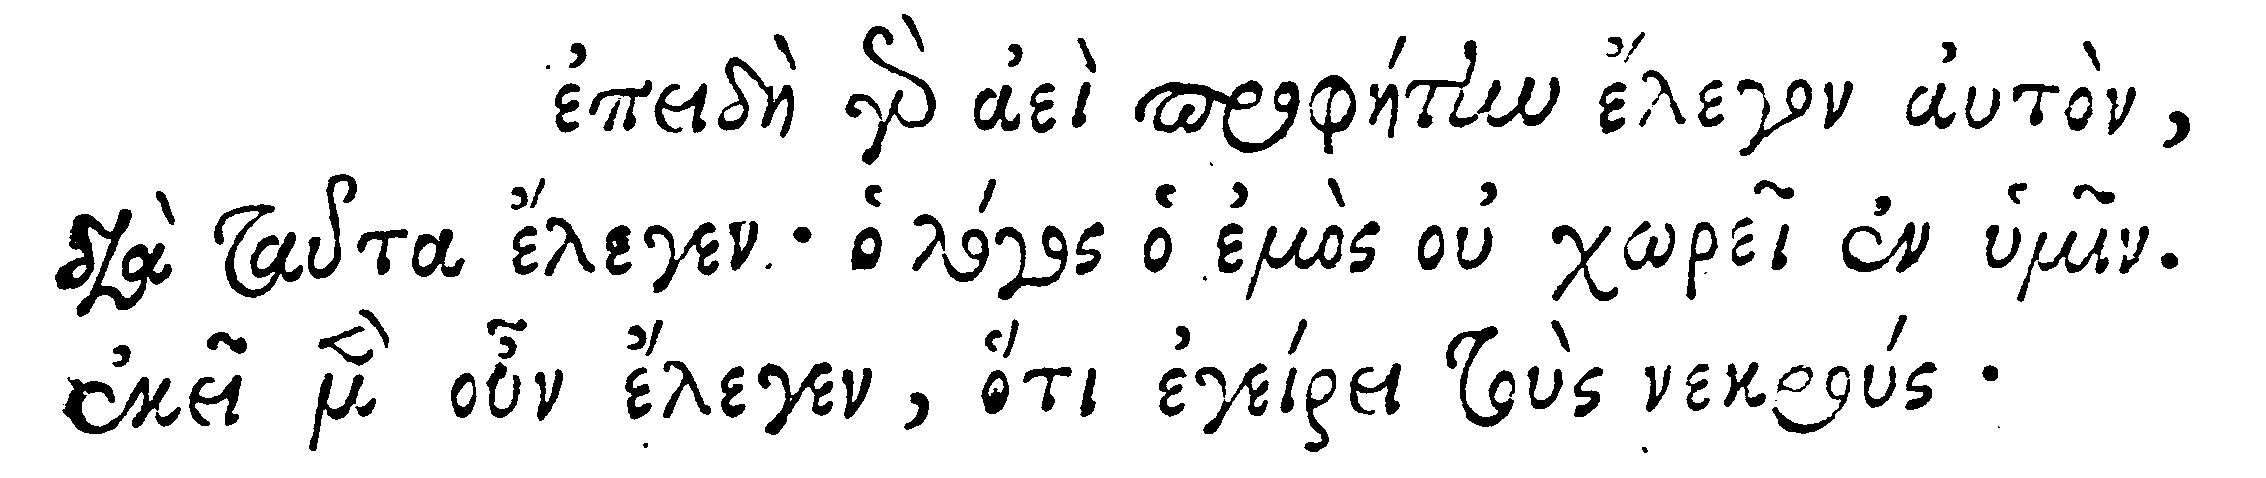 ἐπειδὴ γὰρ ἀεὶ προφήτην ἔλεγον ἀυτὸν,
διὰ ταῦτα ἔλεγεν· ὁ λόγος ὁ ἐμὸς οὐ χωρεῖ ἐν ὑμῖν.
ἐκεῖ μὲν οὖν ἔλεγεν, ὅτι ἐγείρει τοὺς νεκρούς·